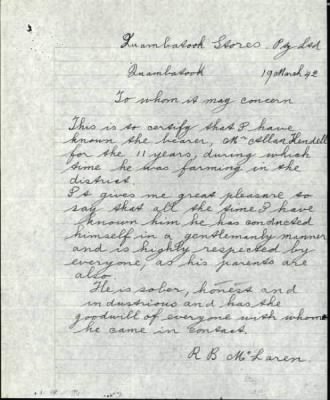 Quambatook Stores Pty Ltd
Quambatook 19 March 42
To whom it may concern
This is to certify that I have
known the bearer, Mr Allan Kendell
for the 11 years, during which
time he was farming in the
district.
It gives me great pleasure to
say that all the time I have
known him he has conducted
himself in a gentlemanly manner
and is highly respected by
everyone, as his parents are
also
He is sober, honest and
industrious and has the
goodwill of everyone with whom
he came in contact.
R B McLaren.